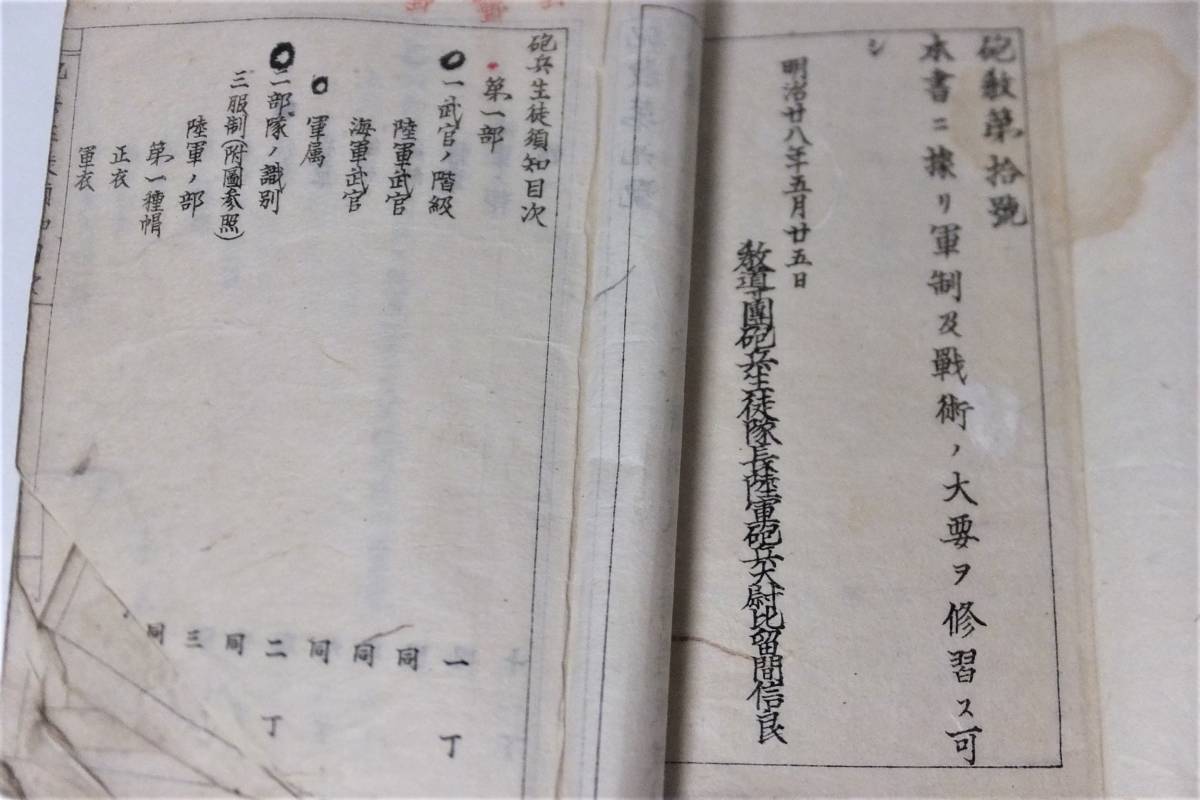 砲教第拾號
本書ニ據リ軍制及戰術ノ大要ヲ修習ス可
シ
明治廿八年五月廿五日
教導團砲兵生徒隊長陸軍砲兵大尉比留間信良
砲兵生徒須知目次
第一部
一武官ノ階級 一丁
陸軍武官 同
海軍武官 同
軍属 同
二部隊ノ識別 二丁
三服制(附圖参照) 同
陸軍ノ部 三
第一種帽 同
正衣
軍衣